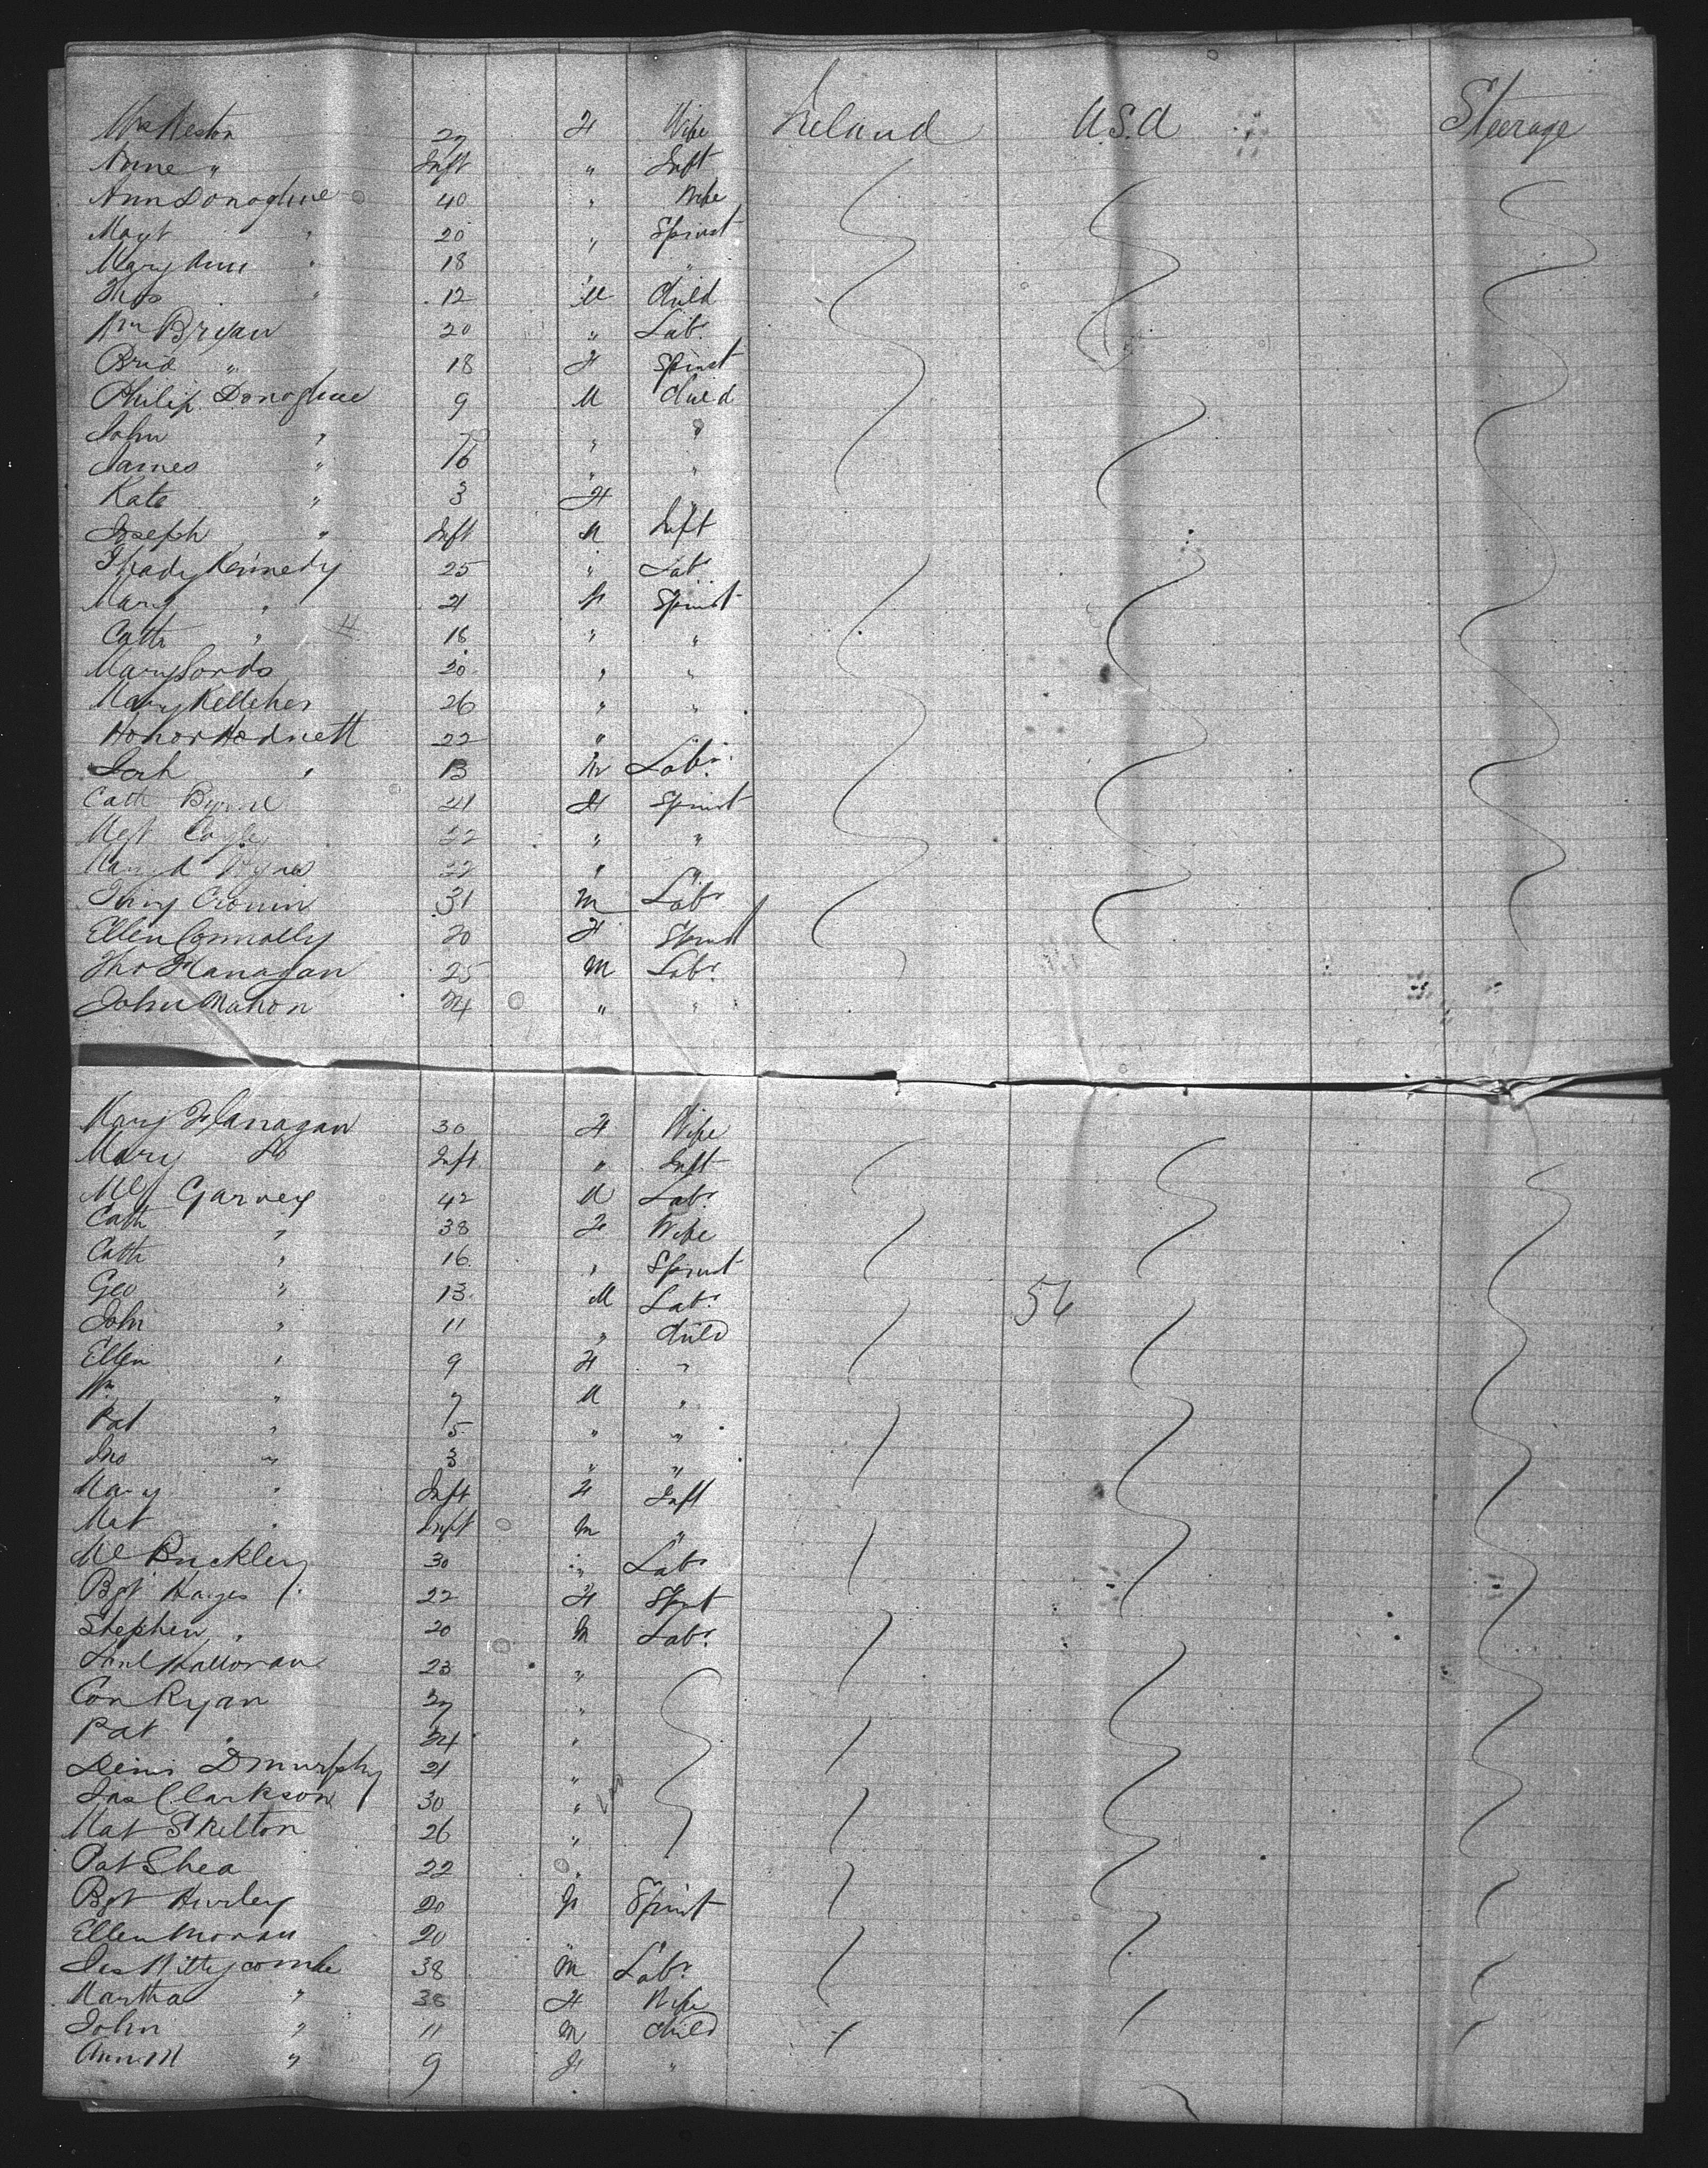 Mrs Neston 27 F Wife Ireland U.S.A Steerage
Anne " Inft " Inft
Ann Donoghue 40 " Wife
Magt " 20 " Spinst
Mary Ann " 18 " "
Thos " 12 M Child
Wm Bryan 20 " Labr
Brid " 18 F Spinst
Philip Donoghue 9 M Child
John " " "
James " 6 " "
Kate " 3 F "
Joseph " Inft M Inft
Thady Kennedy 25 " Labr
Mary " 21 F Spinst
Cath " 16 " "
Mary Sords 20 " "
Mary Kelleher 26 " "
Honor Hodnett 22 "
Jerh " 13 M Labr
Cath Byrne 21 F Spinst
Mgt Coyle 22 " "
Mary A Hynes 22 " "
Timy Cronin 31 M Labr
Ellen Connolly 20 F Spinst
Tho Flanagan 25 M Labr
John Mahon 24 " "
Mary Flanagan 30 F Wife
Mary Do Inft " Inft
Ml Garvey 42 M Labr
Cath " 38 F Wife
Cath " 16 " Spinst
Geo " 13 M Labr 56
John " 11 " Child
Ellen " 9 F "
Wm " 7 M "
Pat " 5 " "
Jno " 3 " "
Mary " Inft F Inft
Mat " Inft M "
Ml Buckley 30 " Labr
Bgt Hayes 22 F Spnt
Stephen " 20 M Labr
Danl Halloran 23 "
Con Ryan 37 "
Pat " 24 "
Denis D Murphy 21 "
Jas Clarkson 30 "
Mat Skelton 26 "
Pat Shea 22 "
Bgt Hurley 20 F Spinst
Ellen Moran 20 " "
Jas Kittycombe 38 M Labr
Martha " 38 F Wife
John " 11 M Child
Ann M " 9 F "